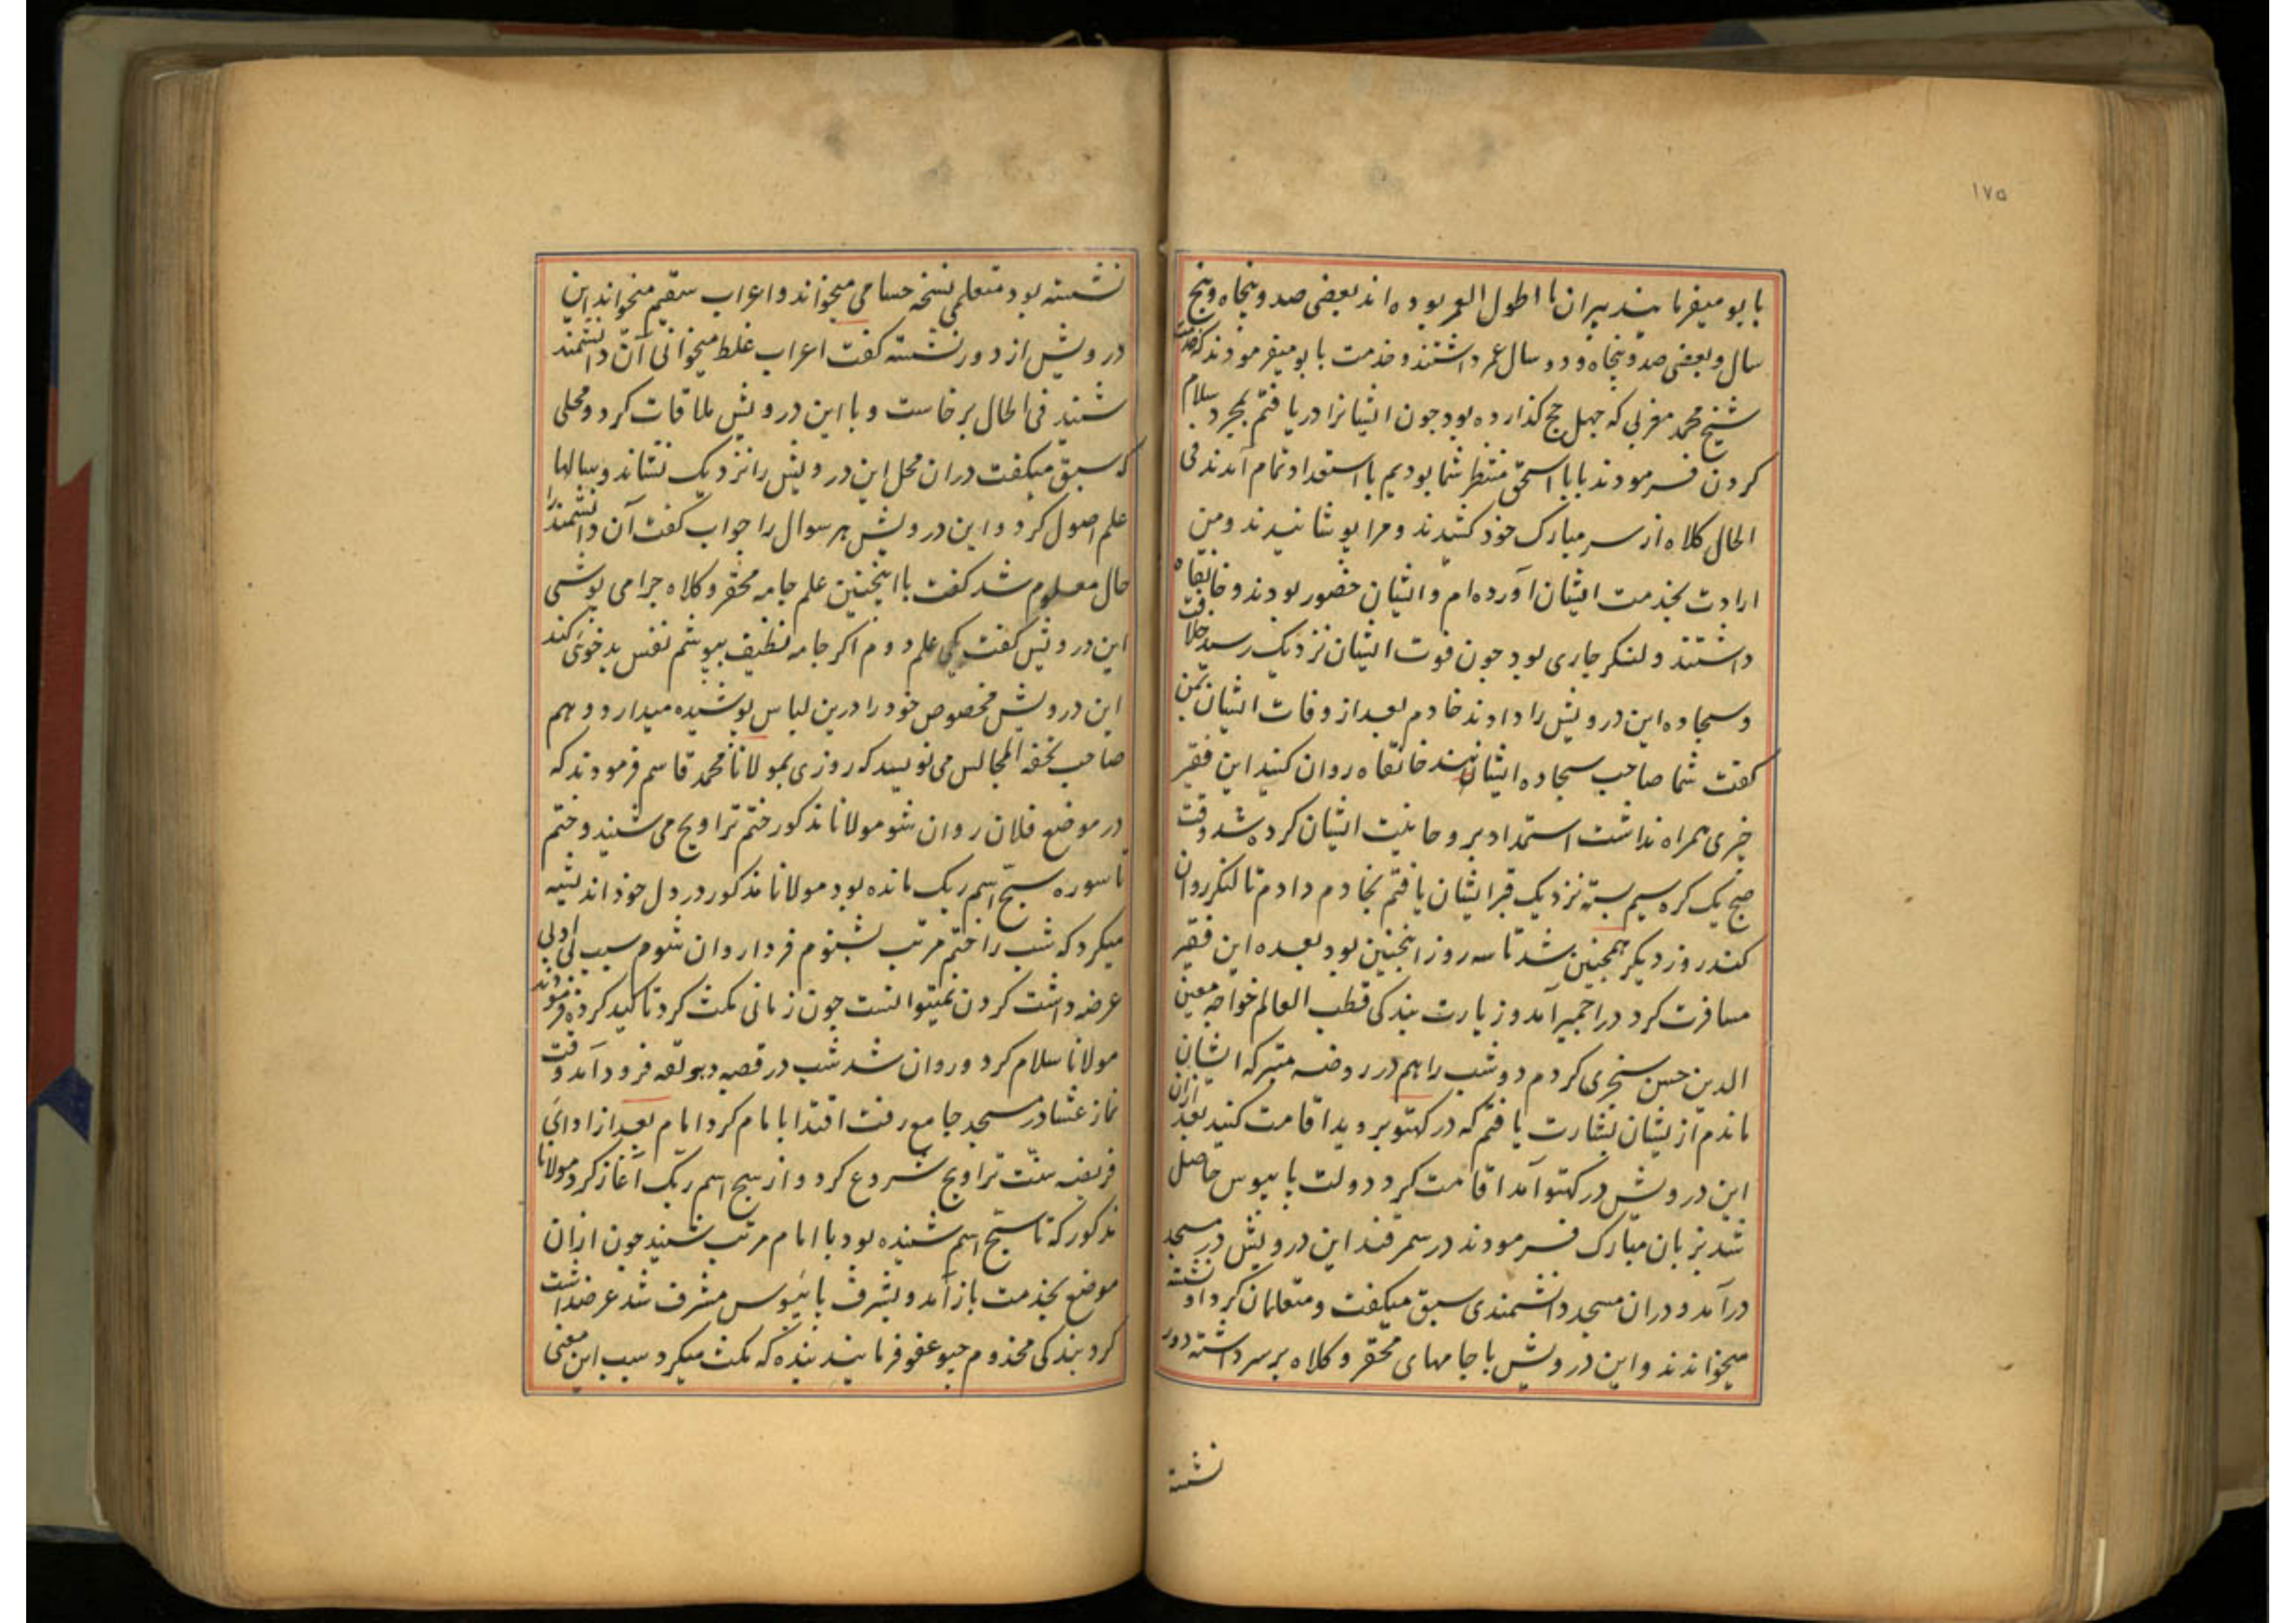 ۱۷۵
بابو میفرمایند پیران ما اطول العمر بوده اند بعضی صد و پنجاه و پنج
سال و بعضی صد و پنجاه و دو سال عمر داشتند و خدمت بابو میفرمودند که خدمت
شیخ محمد مغربی که چهل حج گذارده بود چون ایشانرا دریافتم بمجرد سلام
کردن فرمودند بابا اسحق منتظر شما بودیم با استعداد تمام آمدند فی
الحال کلاه از سر مبارک خود کشیدند و مرا پوشانیدند و من
ارادت بخدمت ایشان آورده ام و ایشان حضور بودند و خانقاه
داشتند و لنکر جاری بود چون فوت ایشان نزدیک رسید خلافت
و سجاده این درویش را دادند خادم بعد از وفات ایشان بمن
کفت شما صاحب سجاده ایشان خانقاه روان کنید این فقیر
چیزی همراه نداشت استمداد بروحانیت ایشان کرده شد وقت
صبح یک کره سیم بسته نزدیک قبر ایشان یافتم بخادم دادم تا لنکر روان
کند روز دیکر همچنین شد تا سه روز اینچنین بود بعده این فقیر
مسافرت کرد در اجمیر آمد و زیارت بندکی قطب العالم خواجه معین
الدین حسن سنجری کردم دو شب را هم در روضه متبرکه ایشان
ماندم از یشان بشارت یافتم که در کهتو بروید اقامت کنید بعد ازان
این درویش در کهتو آمد اقامت کرد دولت پایبوس حاصل
شد بزبان مبارک فرمودند در سمرقند این درویش در مسجد
درآمد و دران مسجد دانشمندی سبق میکفت و متعلمان کرد او نشسته
میخواندند و این درویش با جامهای محقر و کلاه بر سر داشته دور
نشسته
نشسته بود متعلمی نسخه حسامی میخواند و اعراب سقیم میخواند این
درویش از دور نشسته کفت اعراب غلط میخوانی آن دانشمند
شنید فی الحال برخاست و با این درویش ملاقات کرد و محلی
که سبق میکفت دران محل این درویش را نزدیک نشاند و سالها
علم اصول کرد و این درویش هر سوال را جواب کفت آن دانشمند را
حال معلوم شد کفت با اینچنین علم جامه محقر و کلاه چرا می پوشی
این درویش کفت یکی علم دوم اکر جامه نظیف بپوشم نفس بدخوئی کند
این درویش مخصوص خود را درین لباس پوشیده میدارد و هم
صاحب تحفه المجالس می نویسد که روزی بمولانا محمد قاسم فرمودند که
در موضع فلان روان شو مولانا مذکور ختم تراویح می شنید و ختم
تا سوره سبح اسم ربک مانده بود مولانا مذکور در دل خود اندیشیه
میکرد که شب را ختم مرتب بشنوم فردا روان شوم سبب بی ادبی
عرضه داشت کردن نمیتوانست چون زمانی مکث کرد تاکید کرده فرمودند
مولانا سلام کرد و روان شد شب در قصبه دهولقه فرود آمد وقت
نماز عشا در مسجد جامع رفت اقتدا بامام کرد امام بعد از ادای
فریضه سنت تراویح شروع کرد و از سبح اسم ربک آغاز کرد مولانا
مذکور که تا سبح اسم شنیده بود با امام مرتب شنید چون ازان
موضع بخدمت باز آمد و بشرف پایبوس مشرف شد عرضداشت
کرد بندکی مخدوم جیو عفو فرمایند بنده که مکث میکرد سبب این معنی